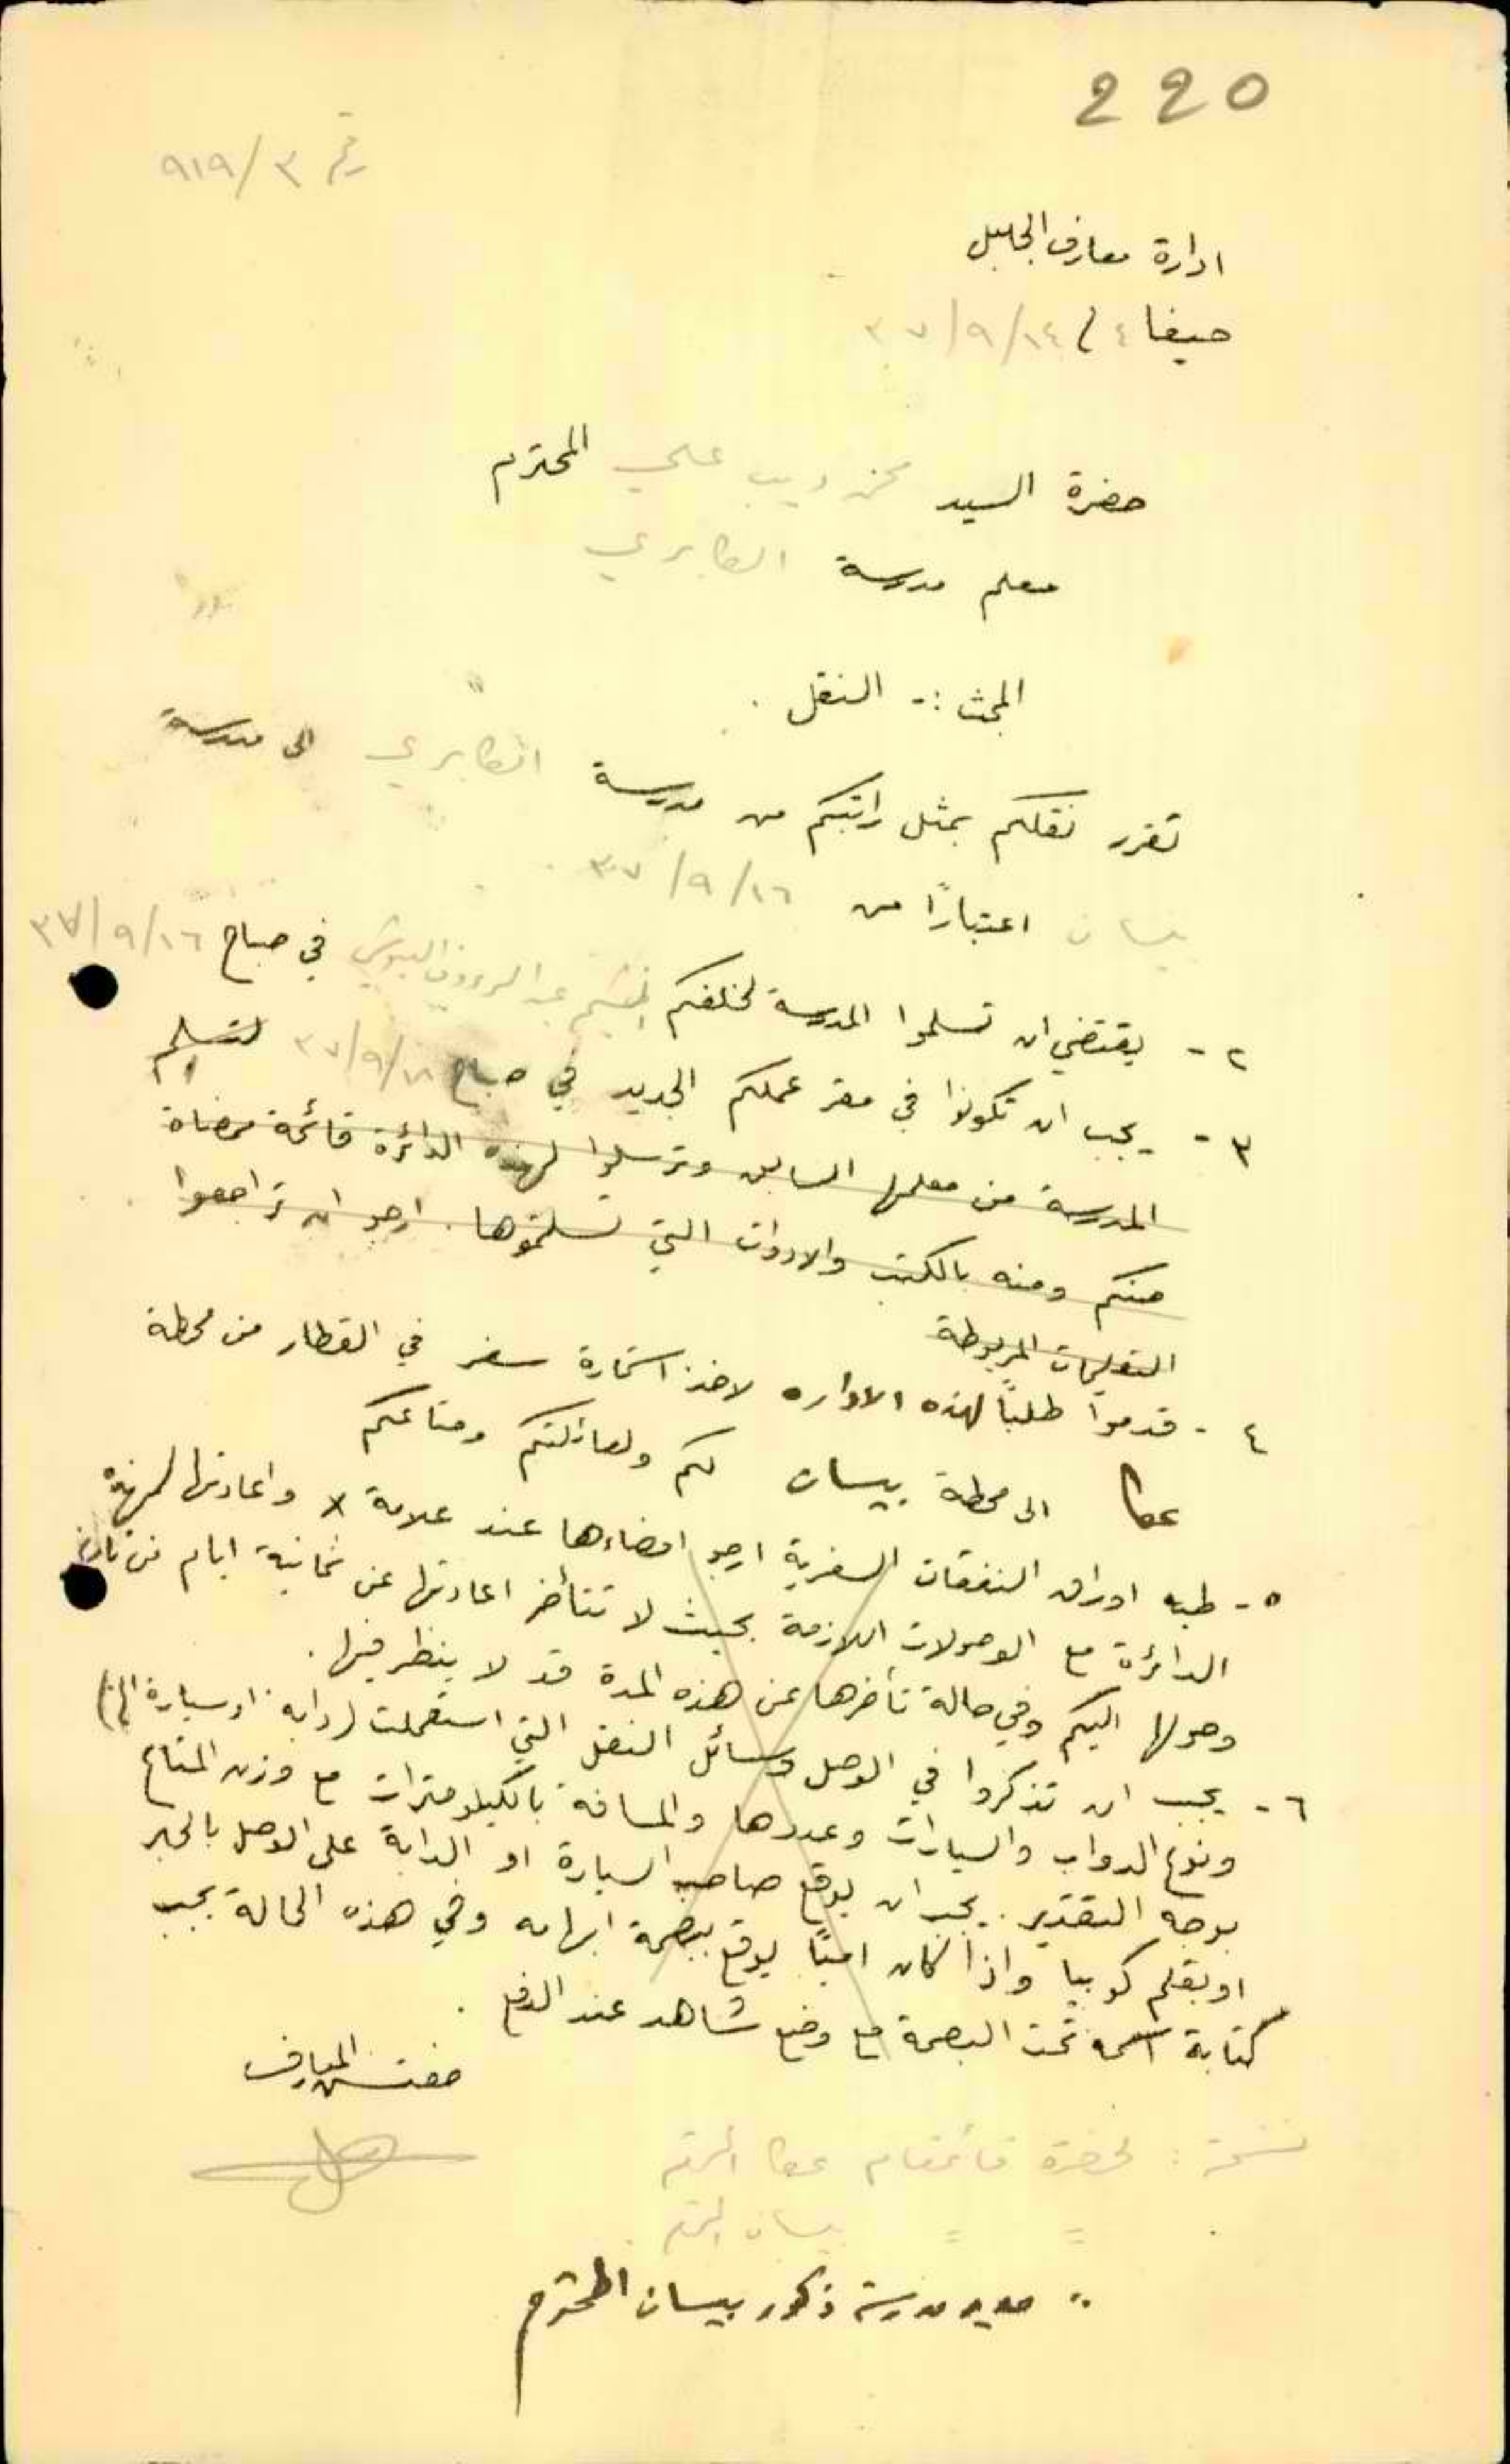 220
رقم ٩١٩/٣
ادارة معارف الجليل
حيفا ٣٧/٩/١٤
حضرة السيد ديب علي المحترم
معلم مدرسة الكابري
المبحث :- النقل .
تقرر نقلكم بمثل راتبكم من مدرسة الكابري الى مدرسة
بيسان اعتبارًا من ٣٧/٩/١٦
٢ - يقتضي ان تسلموا المدرسة لخلفكم عبد الرؤوف في صباح ٣٧/٩/١٦
٣ - يجب ان تكونوا في مقر عملكم الجديد في صباح ٣٧/٩/١٨ لتسلم
المدرسة من معلمها السابق وترسلوا لهذه الدائرة قائمة ممضاة
منكم ومنه بالكتب والادوات التي تسلمتموها . ارجو ان تراجعوا
التعليمات المربوطة
٤ - قدموا طلبًا لهذه الاداره لاخذ استمارة سفر في القطار من محطة
عكا الى محطة بيسان لكم ولعائلتكم ومتاعكم
٥ - طيه اوراق النفقات السفرية ارجو امضاءها عند علامة x واعادتها لهذه
الدائرة مع الوصولات اللازمة بحيث لا تتأخر اعادتها عن ثمانية ايام من تاريخ
وصولها اليكم وفي حالة تأخرها عن هذه المدة قد لا ينظر فيها .
٦ - يجب ان تذكروا في الوصل وسائل النقل التي استعملت (دابة او سيارة الخ)
ونوع الدواب والسيارات وعددها والمسافة بالكيلومترات مع وزن المتاع
بوجه التقدير . يجب ان يوقع صاحب السيارة او الدابة على الوصل بالحبر
او بقلم كوبيا واذا كان اميًا يوقع ببصمة ابهامه وفي هذه الحالة يجب
كتابة اسمه تحت البصمة مع وضع شاهد عند الدفع .
مفتش المعارف
نسخة : لحضرة قائمقام عكا المحترم
= = بيسان المحترم .
" مدير مدرسة ذكور بيسان المحترم